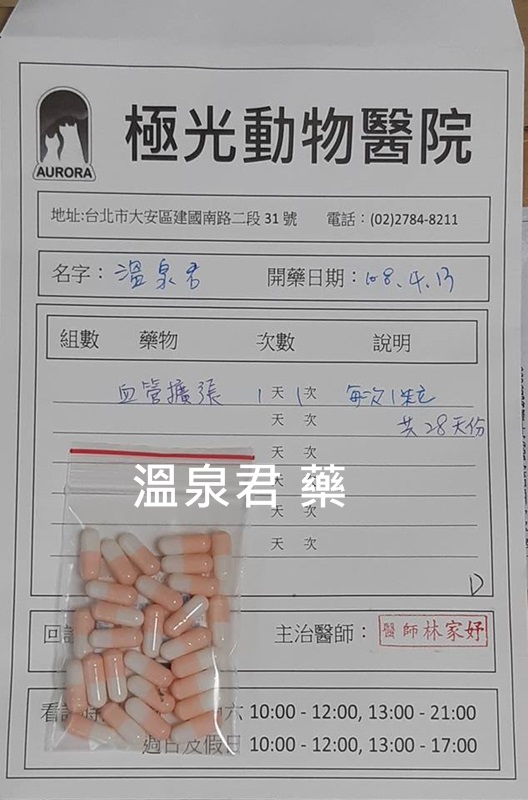 AURORA
極光動物醫院
地址:台北市大安區建國南路二段 31 號 電話：(02)2784-8211
名字：溫泉君 開藥日期：108.4.13
組數 藥物 次數 說明
血管擴張 1 天 1 次 每次1粒
天 次 共28天份
天 次
溫泉君 藥
天 次
天 次
天 次
D
回診 主治醫師： 醫師林家妤
看診時 六 10:00 - 12:00, 13:00 - 21:00
週日及假日 10:00 - 12:00, 13:00 - 17:00